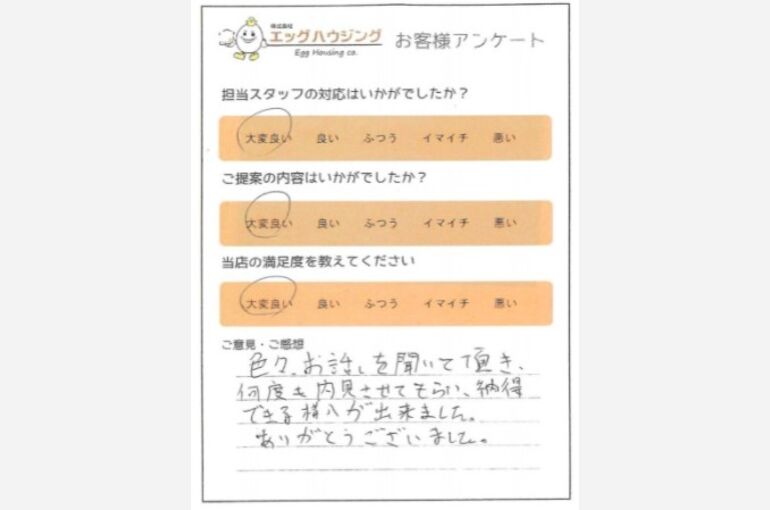 株式会社
エッグハウジング
Egg Housing co.
お客様アンケート
担当スタッフの対応はいかがでしたか？
大変良い 良い ふつう イマイチ 悪い
ご提案の内容はいかがでしたか？
大変良い 良い ふつう イマイチ 悪い
当店の満足度を教えてください
大変良い 良い ふつう イマイチ 悪い
ご意見・ご感想
色々、お話しを聞いて頂き、
何度も内見させてもらい、納得
できる様入が出来ました。
ありがとうございました。